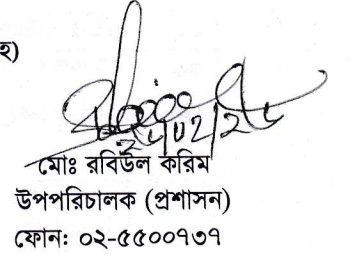 হ)
মোঃ রবিউল করিম
উপপরিচালক (প্রশাসন)
ফোন: ০২-৫৫০০৭৩৭